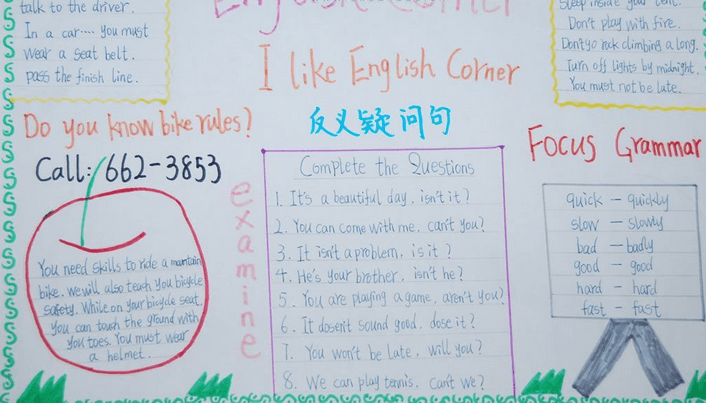 talk to the driver.
In a car.... you must
wear a seat belt.
pass the finish line.
English Corner
sleep inside your tent.
Don't play with fire.
Don't go rock climbing a long.
Turn off lights by midnight.
You must not be late.
I like English Corner
Do you know bike rules?
Call: 662-3853
You need skills to ride a mountain
bike. we will also teach you bicycle
safety. While on your bicycle seat,
you can touch the ground with
you toes. You must wear
a helmet.
examine
反义疑问句
Complete the Questions
1. It's a beautiful day, isn't it?
2. You can come with me, can't you?
3. It isn't a problem, is it?
4. He's your brother, isn't he?
5. You are playing a game, aren't you?
6. It doesn't sound good, dose it?
7. You won't be late, will you?
8. We can play tennis, can't we?
Focus Grammar
quick - quickly
slow - slowly
bad - badly
good - good
hard - hard
fast - fast